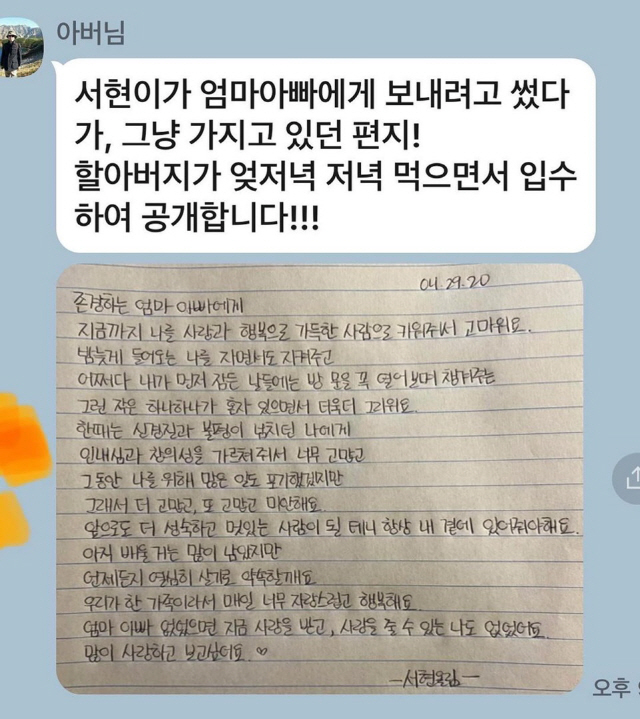 아버님
서현이가 엄마아빠에게 보내려고 썼다
가, 그냥 가지고 있던 편지!
할아버지가 엊저녁 저녁 먹으면서 입수
하여 공개합니다!!!
04.29.20
존경하는 엄마 아빠에게
지금까지 나를 사랑과 행복으로 가득한 사람으로 키워주셔서 고마워요.
밤늦게 들어오는 나를 자면서도 지켜주고
어쩌다 내가 먼저 잠든 날들에는 방 문을 꼭 열어보며 챙겨주는
그런 작은 하나하나가 혼자 있으면서 더욱더 그리워요.
한때는 신경질과 불평이 넘치던 나에게
인내심과 창의성을 가르쳐주셔서 너무 고맙고
그동안 나를 위해 많은 일도 포기했겠지만
그래서 더 고맙고, 또 고맙고 미안해요.
앞으로도 더 성숙하고 멋있는 사람이 될 테니 항상 내 곁에 있어줘야해요.
아직 배울 거는 많이 남았지만
언제든지 열심히 살기로 약속할게요
우리가 한 가족이라서 매일 너무 자랑스럽고 행복해요
엄마 아빠 없었으면 지금 사랑을 받고, 사랑을 줄 수 있는 나도 없었어요.
많이 사랑하고 보고싶어요 ♡
-서현올림-
오후